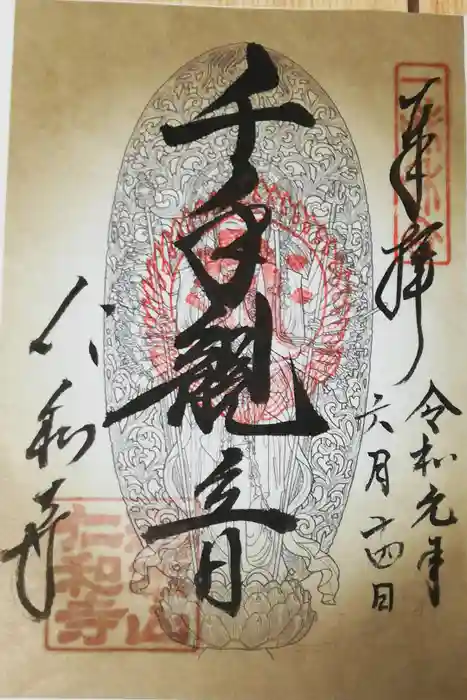 奉拝
令和元年
六月 四日
千手観音
仁和寺
仁和寺